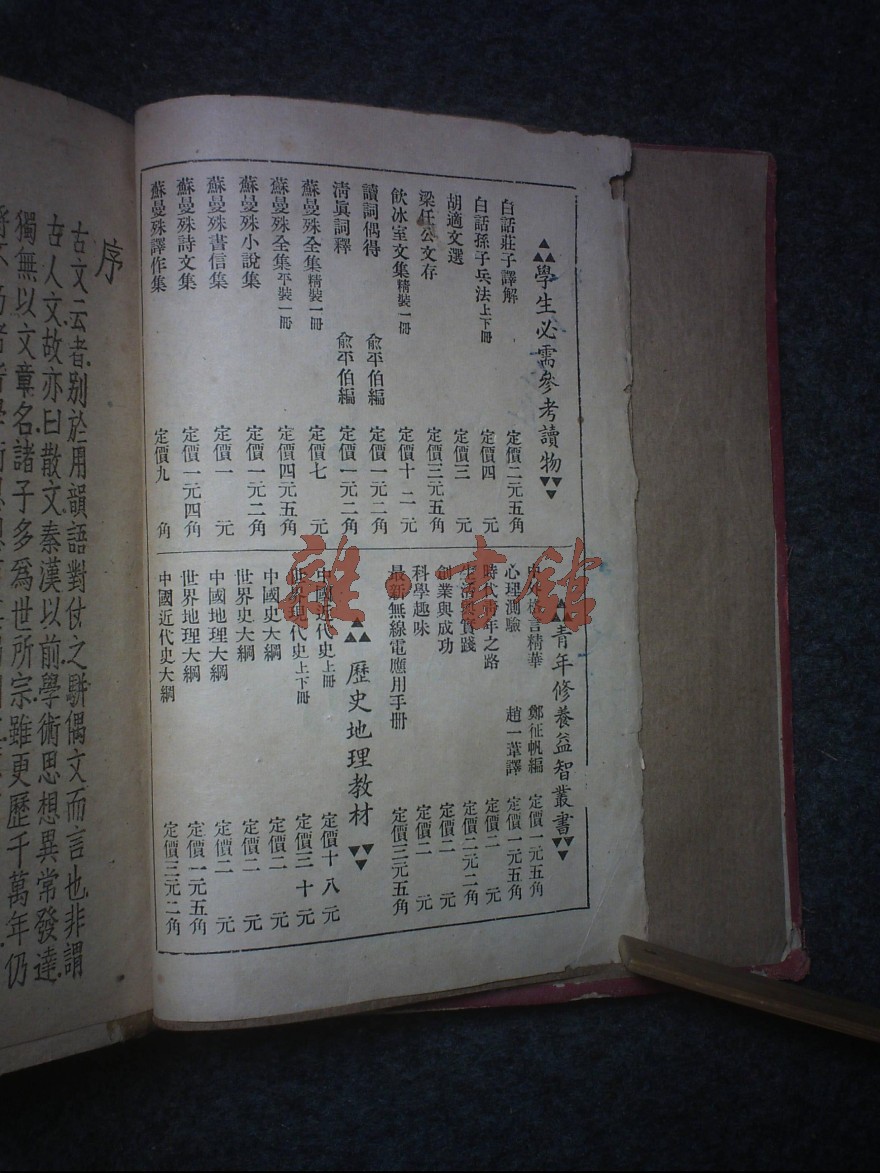 學生必需參考讀物
白話莊子譯解 定價二元五角
白話孫子兵法上下冊 定價四元
胡適文選 定價三元
梁任公文存 定價三元五角
飲冰室文集精裝一冊 定價十二元
讀詞偶得 俞平伯編 定價一元二角
清眞詞釋 俞平伯編 定價一元二角
蘇曼殊全集精裝一冊 定價七元
蘇曼殊全集平裝一冊 定價四元五角
蘇曼殊小說集 定價一元二角
蘇曼殊書信集 定價一元
蘇曼殊詩文集 定價一元四角
蘇曼殊譯作集 定價九角
青年修養益智叢書
中外格言精華 鄭征帆編 定價一元五角
心理測驗 趙一葦譯 定價一元五角
時代青年之路 定價二元
生活與實踐 定價二元二角
創業與成功 定價二元
科學趣味 定價二元
最新無線電應用手冊 定價三元五角
歷史地理教材
中國近代史上冊 定價十八元
世界現代史上下冊 定價三十元
中國史大綱 定價二元
世界史大綱 定價二元
中國地理大綱 定價二元
世界地理大綱 定價一元五角
中國近代史大綱 定價三元二角
雜·書館
序
古文云者別於用韻語對仗之駢偶文而言也非謂
古人文故亦曰散文秦漢以前學術思想異常發達
獨無以文章名諸子多爲世所宗雖更歷千萬年仍